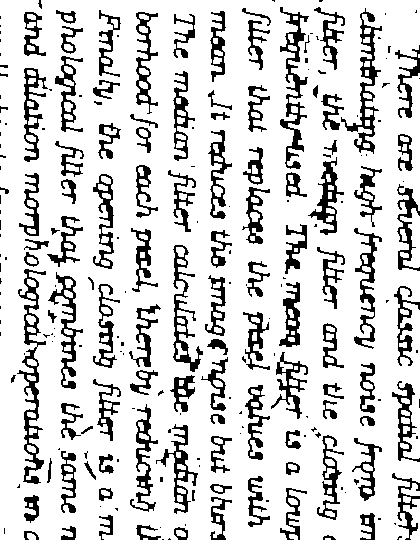 There are several classic spatial filters
eliminating high frequency noise from im
filter, the median filter and the closing
frequently used. The mean filter is a lowp
filter that replaces the pixel values with
mean. It reduces the image noise but blurs
The median filter calculates the median o
borhood for each pixel, thereby reducing th
Finally, the opening closing filter is a m
phological filter that combines the same n
and dilation morphological operations in